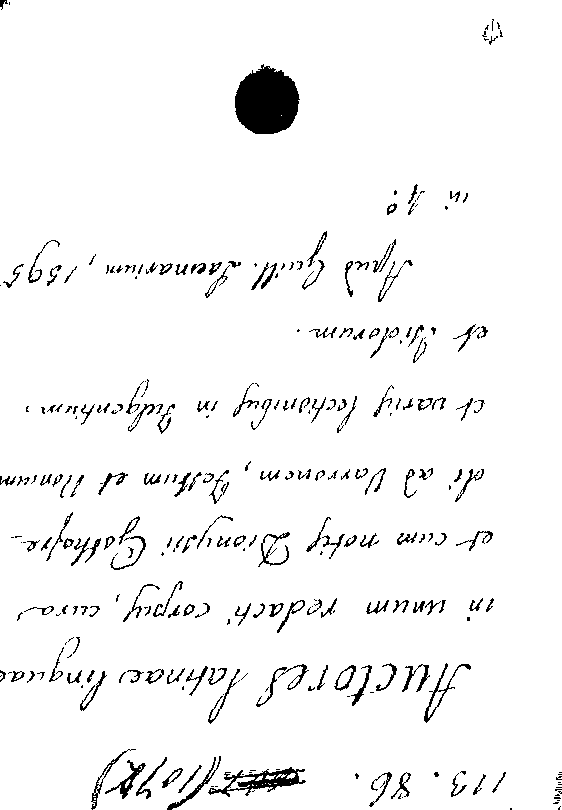 113.86. (1072)
Auctores latinae linguae
in unum redacti corpus, cura
et cum notis Dionysii Gothofre-
di ad Varronem, Festum et Nonium
et variis lectionibus in Fulgentium,
et Isidorum.
Apud Guill. Laemarium, 1595
in 4º